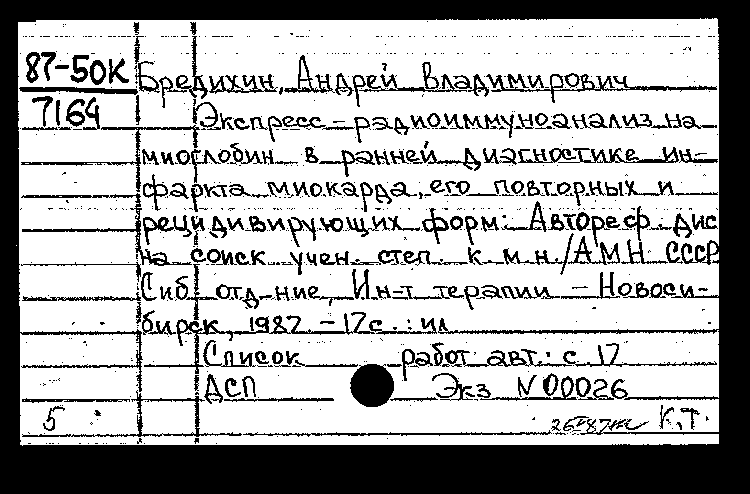 87-50К
7164
Бредихин, Андрей Владимирович
Экспресс-радиоиммуноанализ на
миоглобин в ранней диагностике ин-
фаркта миокарда, его повторных и
рецидивирующих форм: Автореф. дис
на соиск учен. степ. к. м. н. / АМН СССР
Сиб. отд-ние, Ин-т терапии - Новоси-
бирск, 1987 - 17 с. : ил
Список работ авт.: с. 17
ДСП Экз N 00026
5 К.Т.